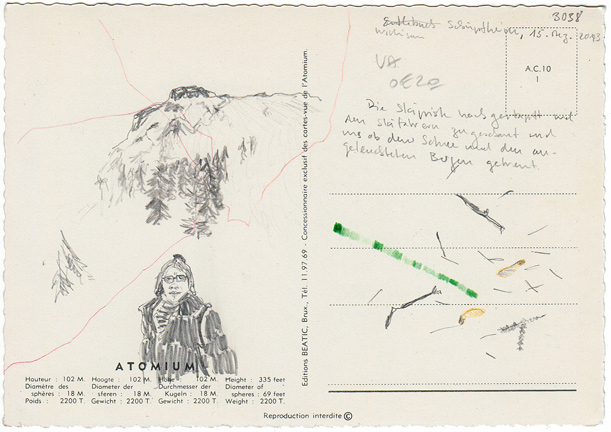 3038
15. Dez. 2013
A.C.10
1
Die Skipiste
den Skifahrern zugeschaut und
uns ob dem Schnee und den an-
geleuchteten Bergen gefreut.
Editions BEATIC, Brux., Tél. 11.97 69 - Concessionnaire exclusif des cartes-vue de l'Atomium.
ATOMIUM
Hauteur : 102 M. Hoogte : 102 M. Höhe : 102 M. Height : 335 feet
Diamètre des Diameter der Durchmesser der Diameter of
sphères : 18 M. sferen : 18 M. Kugeln : 18 M. spheres : 69 feet
Poids : 2200 T. Gewicht : 2200 T. Gewicht : 2200 T. Weight : 2200 T.
Reproduction interdite ©